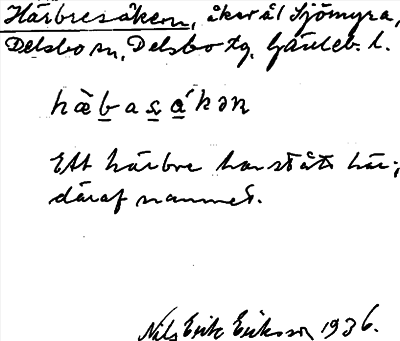 Härbresåkern, åker åt Sjömyra,
Delsbo sn, Delsbo tg. Gävleb. l.
hæ̀basákən
Ett härbre har stått här;
däraf namnet.
Nils Erik Eriksson 1936.